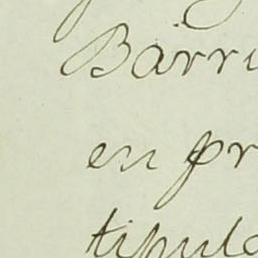 Barri
en pr
tipula